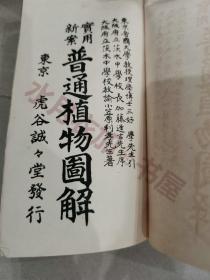 東京帝國大學教授理學博士三好學先生引
大阪府立茨木中學校長加藤逢吉先生序
大阪府立茨木中學校教諭小笠原利孝先生著
實用
新案
普通植物圖解
東京 虎谷誠々堂發行